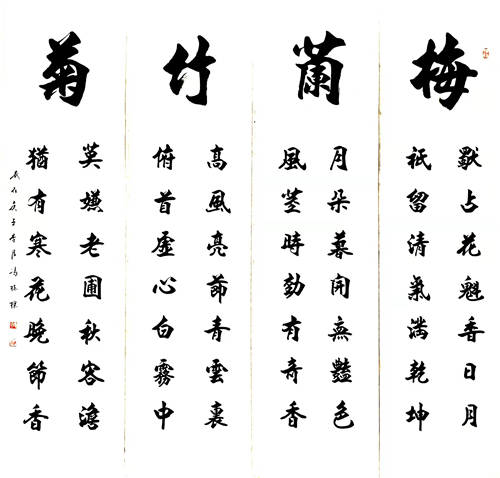 梅
占花魁香日月
祗留清氣滿乾坤
蘭
月朵暮開無豔色
風莖時動有奇香
竹
高風亮節青雲裏
俯首虛心白霧中
菊
莫嫌老圃秋容澹
猶有寒花晚節香